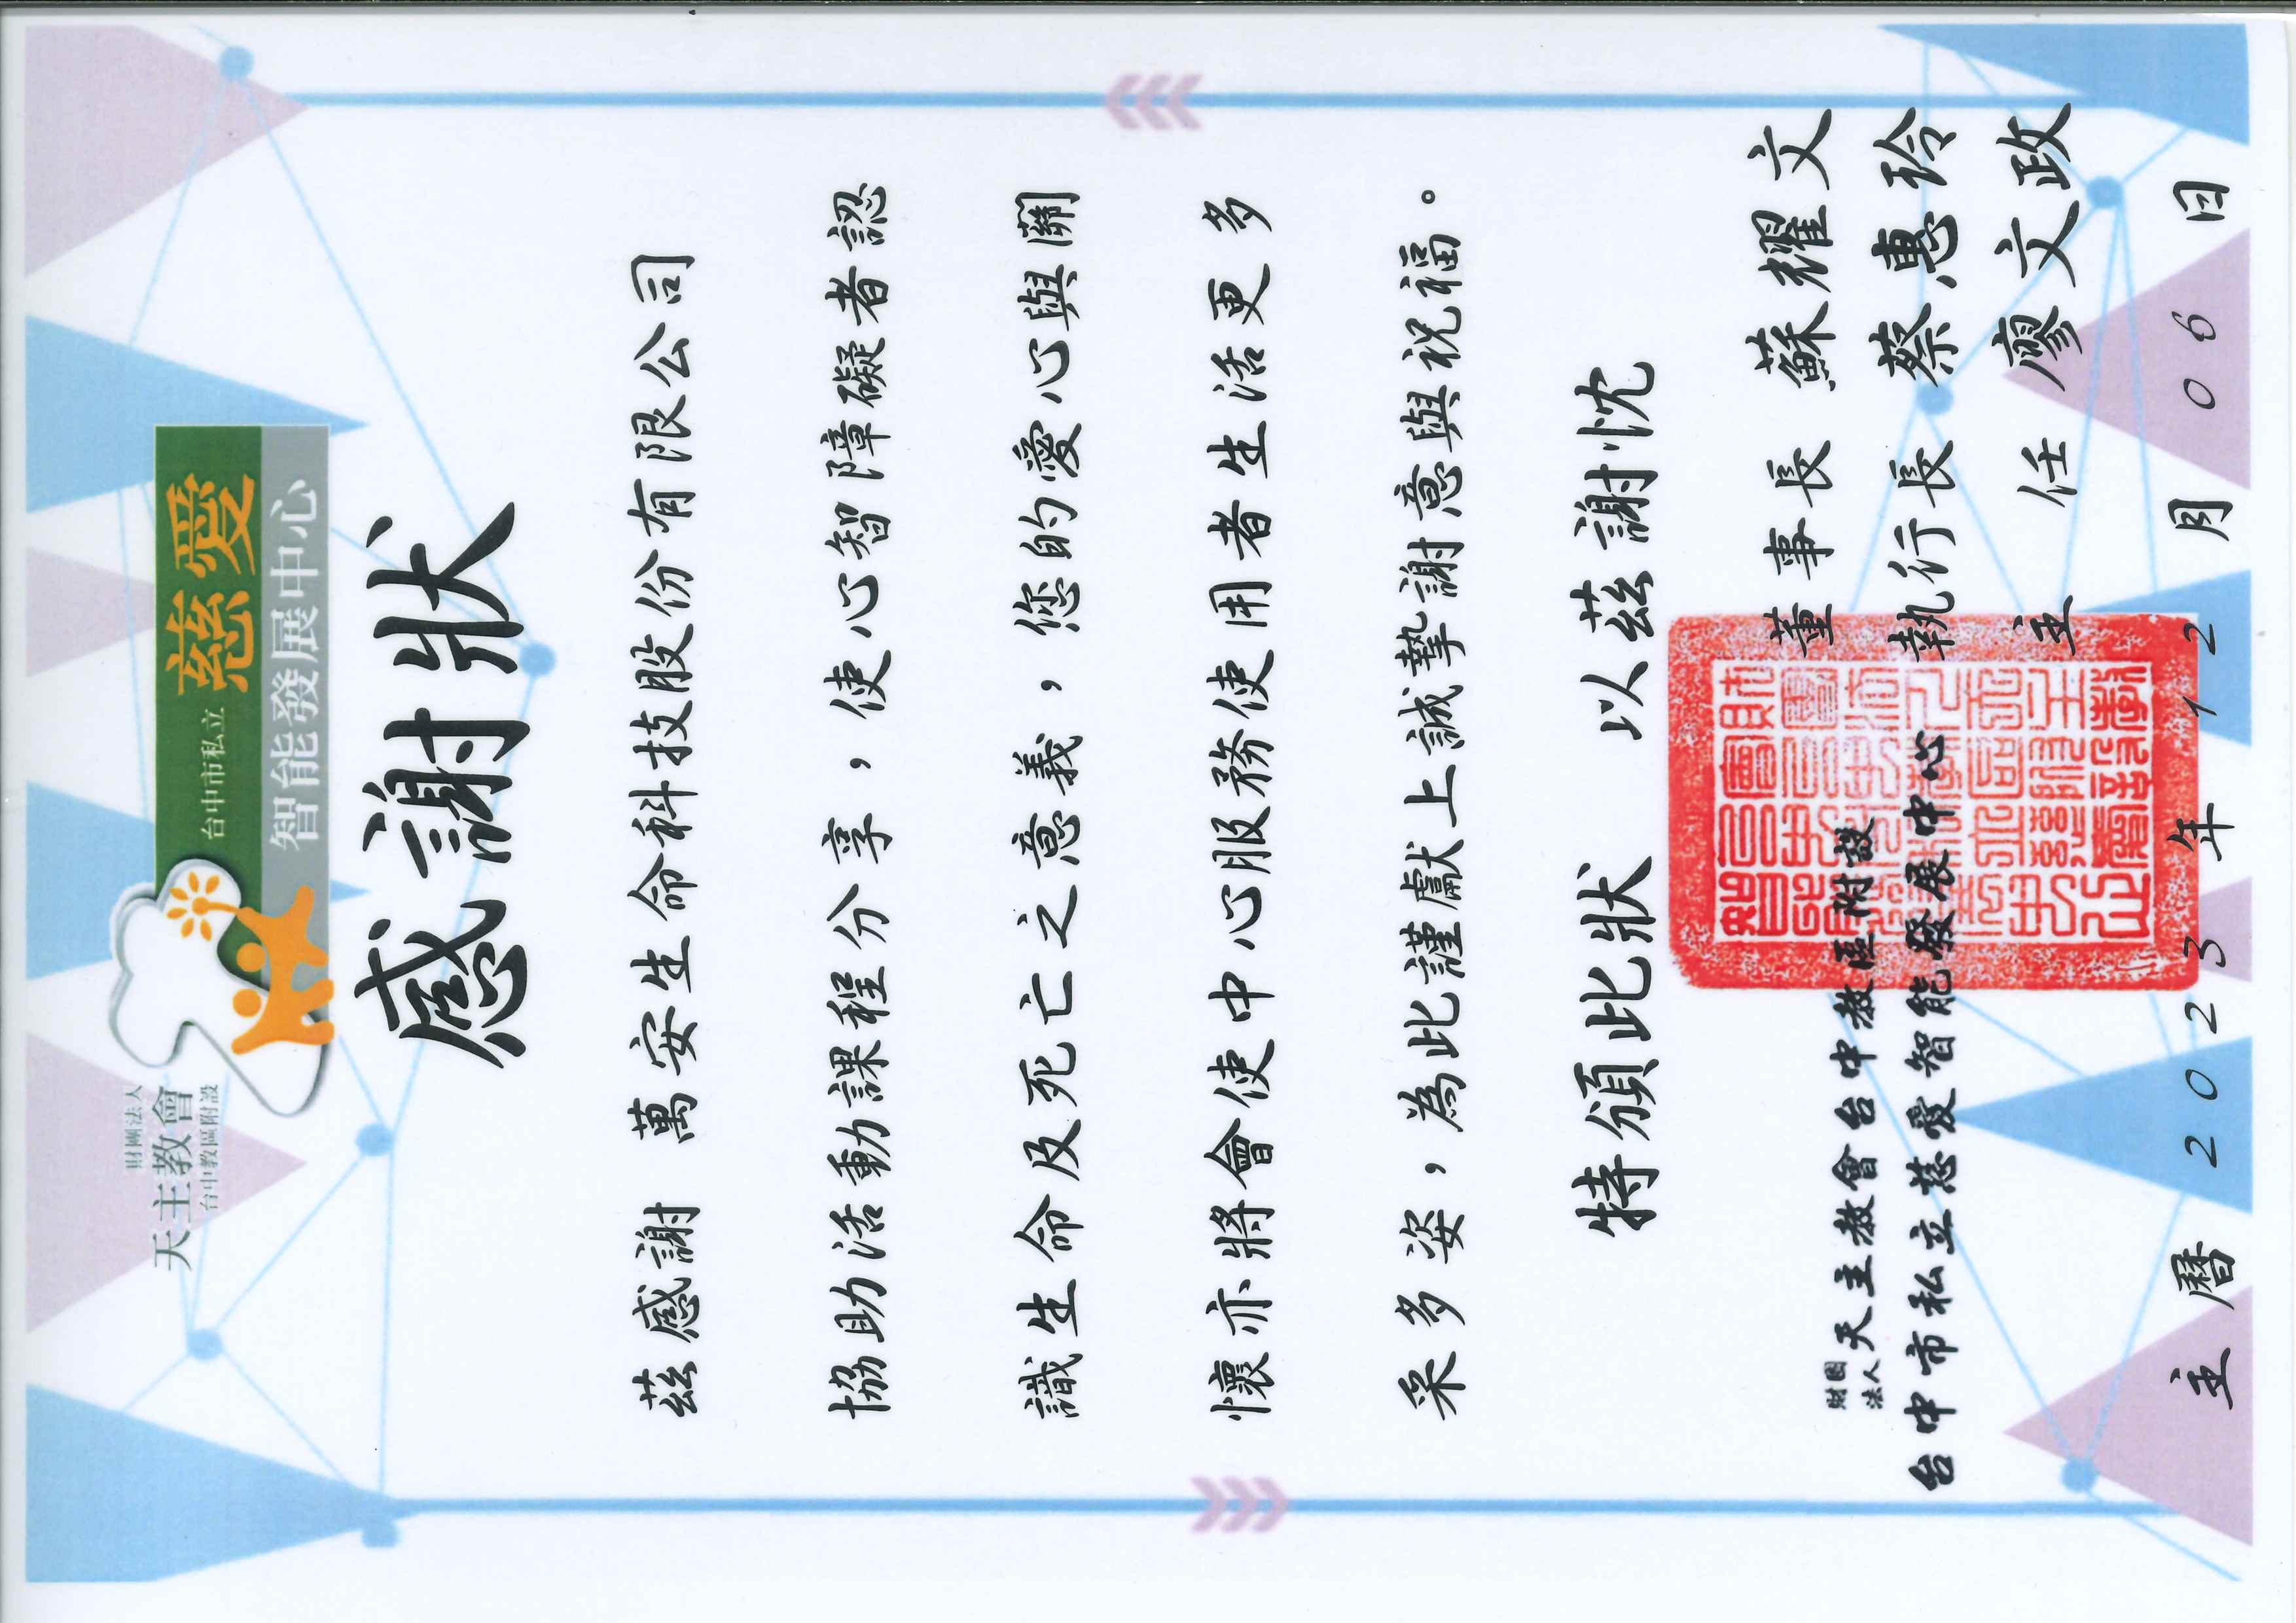 財團法人
天主教會
台中教區附設
台中市私立 慈愛
智能發展中心
感謝狀
茲感謝 萬安生命科技股份有限公司
協助活動課程分享，使心智障礙者認
識生命及死亡之意義，您的愛心與關
懷亦將會使中心服務使用者生活更多
采多姿，為此謹獻上誠摯謝意與祝福。
特頒此狀 以茲謝忱
董事長 蘇耀文
財團法人天主教會台中教區附設
執行長 蔡惠玲
台中市私立慈愛智能發展中心
主任 廖文政
主曆 2023年12月06日